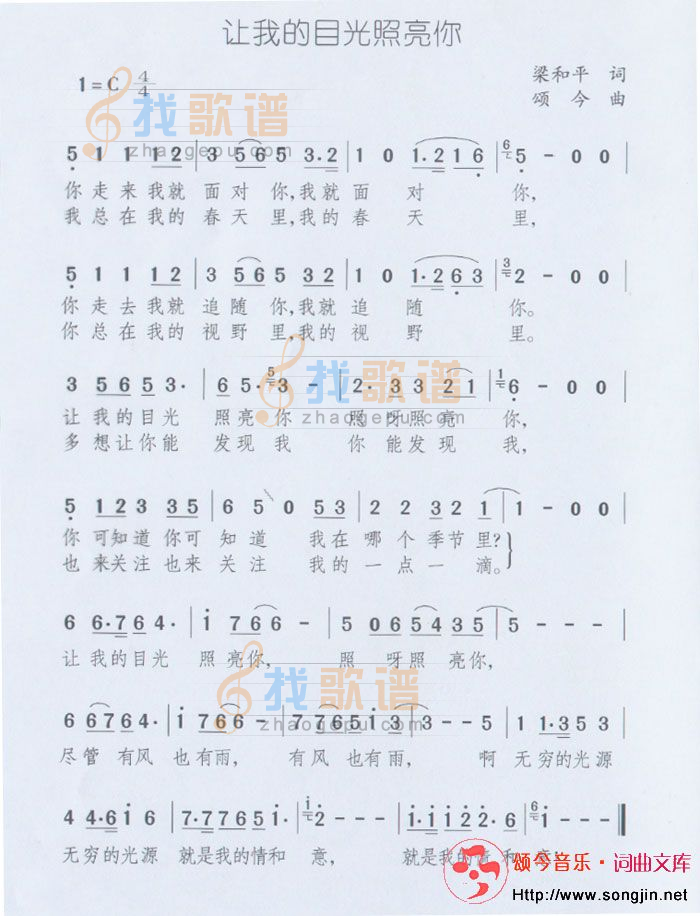 让我的目光照亮你
1=C 4/4
梁和平 词
颂今 曲
找歌谱
zhaogepu.com
5 1 1 12 | 3 565 3·2 | 1 0 1·216 | 5 - 0 0 |
你走来我就 面对 你,我就面 对 你,
我总在我的 春天 里,我的春 天 里,
5 1 1 12 | 3 565 32 | 1 0 1·263 | 2 - 0 0 |
你走去我就 追随 你,我就追 随 你。
你总在我的 视野 里,我的视 野 里。
找歌谱
zhaogepu.com
3 5653· | 65·3 - | 2·3321 | 6 - 0 0 |
让我的目光 照亮你 照呀照亮 你,
多想让你能 发现我 你能发现 我,
5 123 35 | 6 5 0 53 | 2 2 32 1 | 1 - 0 0 |
你可知道你可 知道 我在哪个季节里?
也来关注也来 关注 我的一点一 滴。
6 6·764· | i 766 - | 5 065435 | 5 - - - |
让我的目光 照亮你, 照 呀照 亮你,
找歌谱
zhaogepu.com
6 6764· | i 766 - | 7765i3 | 3 - - 5 | 1 1·353 |
尽管 有风 也有雨, 有风 也有雨, 啊 无穷的光源
4 4·6i6 | 7·77657 | 2 - - - | i·iii22·6 | i - - - ‖
无穷的光源 就是我的情和 意, 就是我的情和 意。
颂今音乐·词曲文库
Http://www.songjin.net